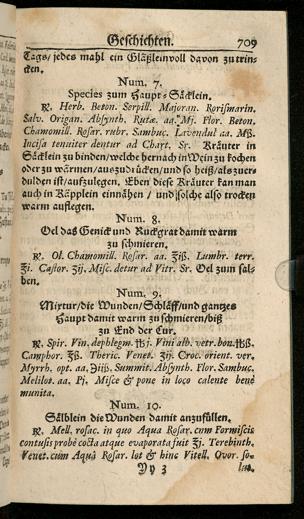 Geschichten. 709
Tags/ jedes mahl ein Gläßleinvoll davon zu trin-
cken.
Num. 7.
Species zum Haupt-Säcklein.
℞. Herb. Beton. Serpill. Majoran. Rorismarin.
Salv. Origan. Absynth. Rutæ. aa. Mj. Flor. Beton.
Chamomill. Rosar. rubr. Sambuc. Lavendul aa. Mß.
Incisa tenuiter dentur ad Chart. Sr. Kräuter in
Säcklein zu binden/welche hernach in Wein zu kochen
oder zu wärmen/auszudrücken/und so heiß/als zu er-
dulden ist/aufzulegen. Eben diese Kräuter kan man
auch in Käpplein einnähen / und solche also trocken
warm auflegen.
Num. 8.
Oel das Genick und Ruckgrat damit warm
zu schmieren.
℞. Ol. Chamomill. Rosar. aa. ℥iß. Lumbr. terr.
℥i. Castor. ʒij. Misc. detur ad Vitr. Sr. Oel zum sal-
ben.
Num. 9.
Mixtur/die Wunden/Schläff/und gantzes
Haupt damit warm zu schmieren/biß
zu End der Cur.
℞. Spir. Vin. dephlegm. ℔j. Vini alb. vetr. bon. ℔ß.
Camphor. ℥ß. Theric. Venet. ʒij. Croc. orient. ver.
Myrrh. opt. aa. ℈iiß. Summit. Absynth. Flor. Sambuc.
Melilot. aa. Pj. Misce & pone in loco calente benè
munita.
Num. 10.
Sälblein die Wunden damit anzufüllen.
℞. Mell. rosac. in quo Aqua Rosar. cum Formicis
contusis probè cocta atque evaporata fuit ℥j. Terebinth.
Venet. cum Aquâ Rosar. lot & hinc Vitell. Ovor. so-
Yy 3 lut.